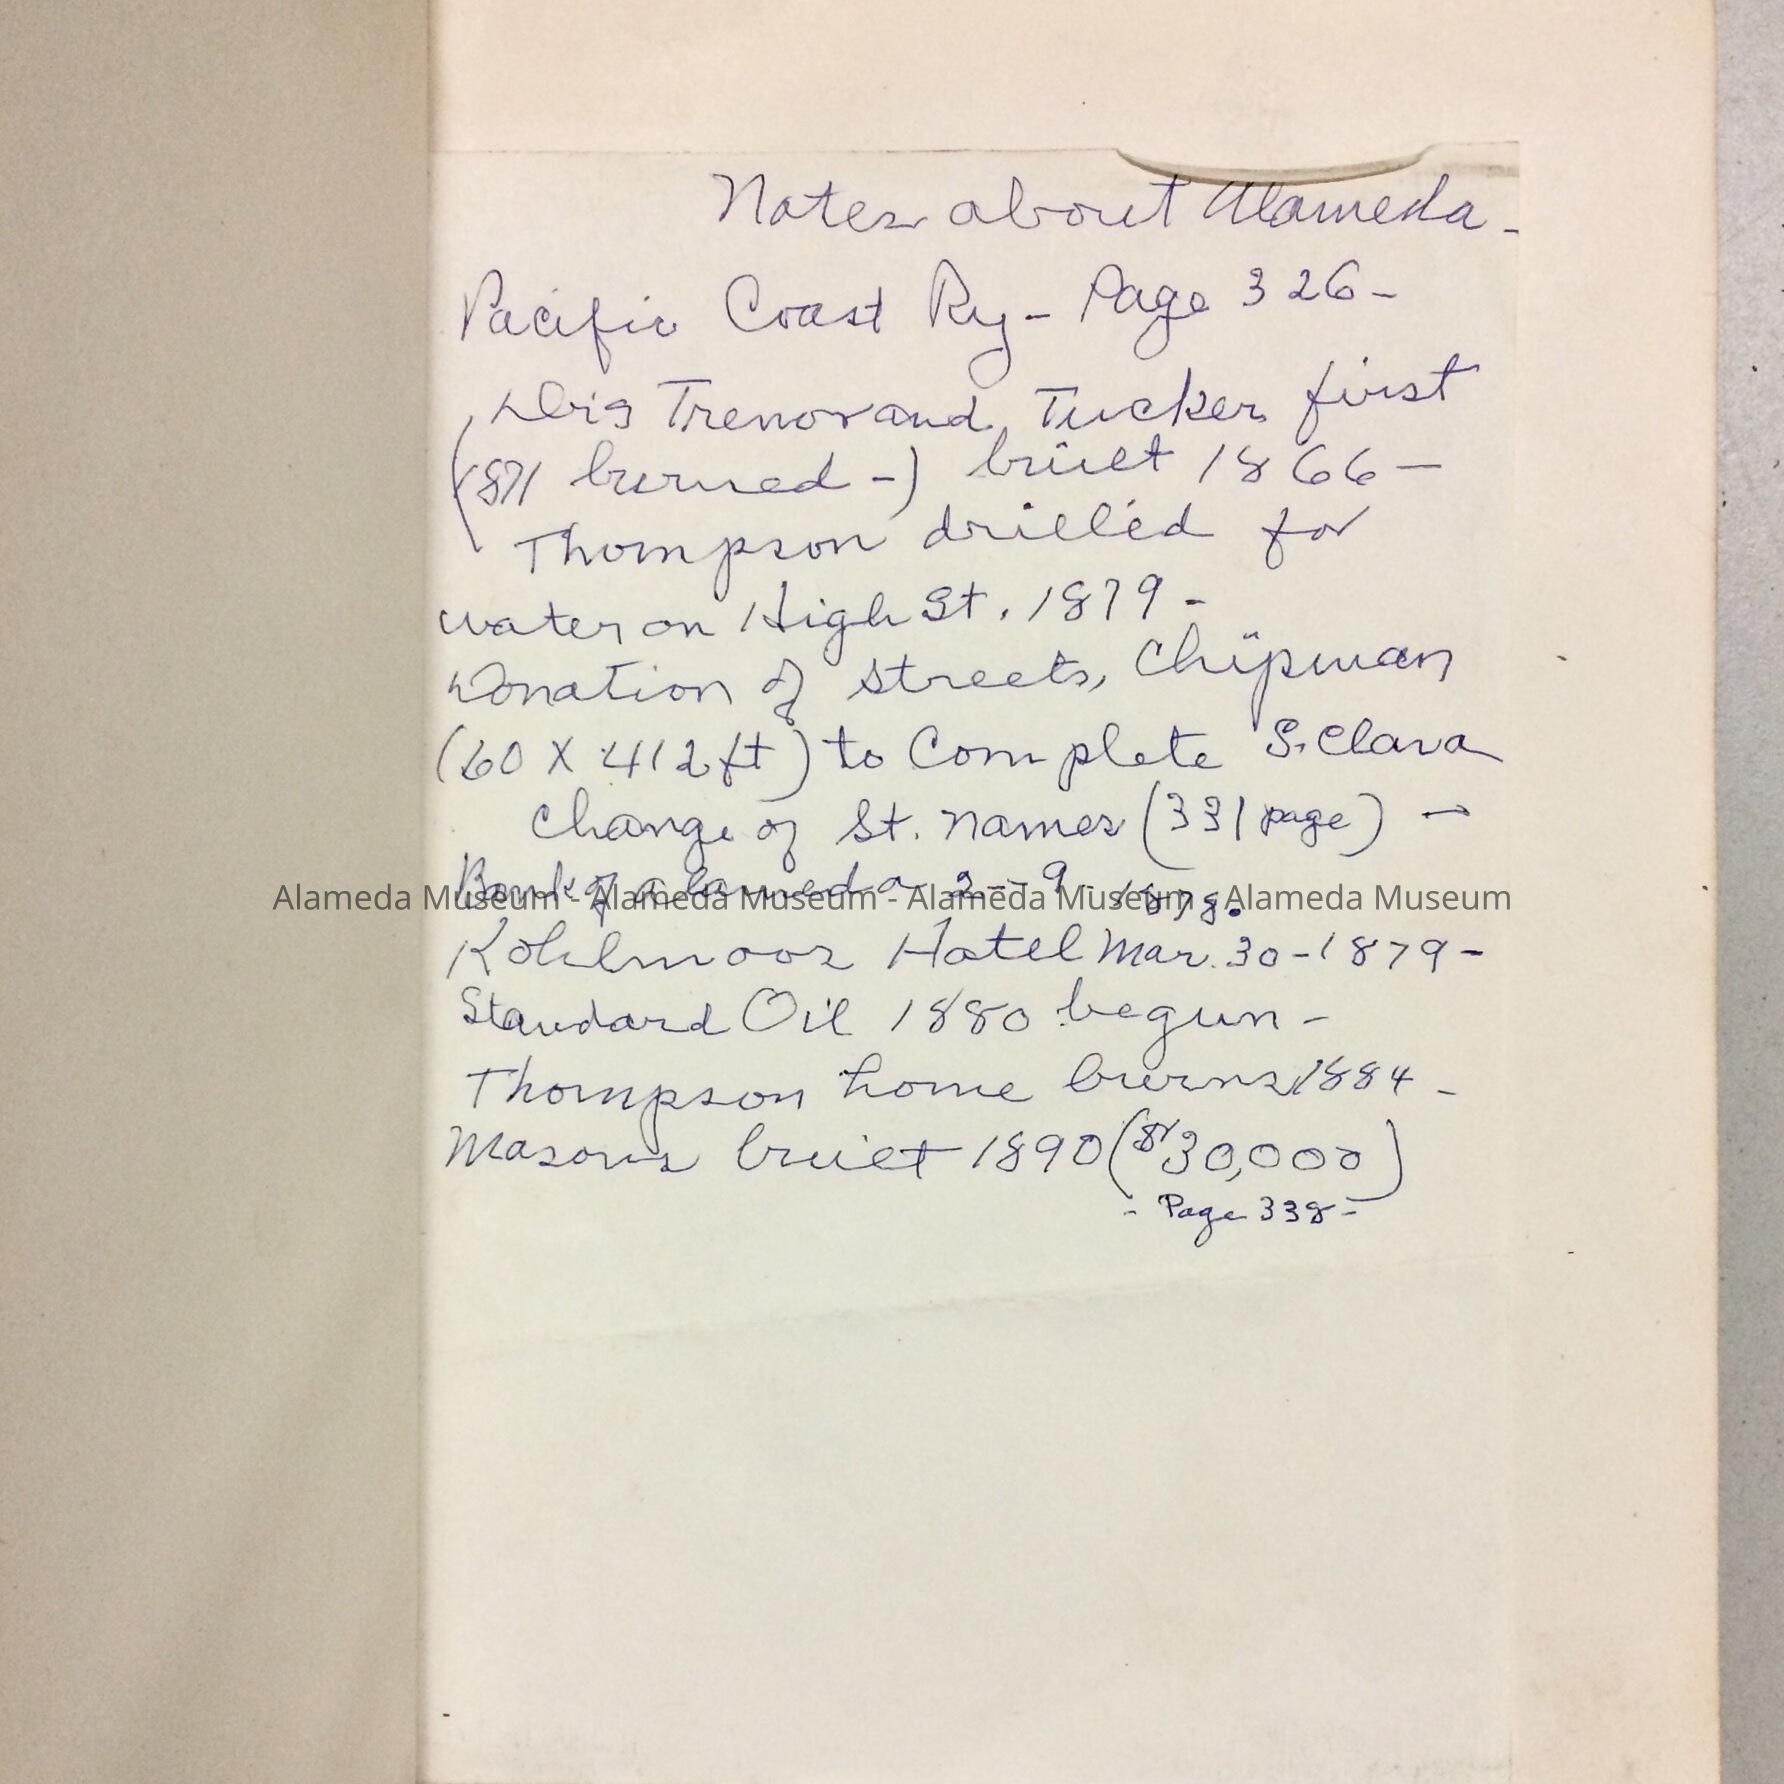 Notes about Alameda -
Pacific Coast Ry - Page 326 -
Drs Trenor and Tucker first
(1871 burned -) built 1866 -
Thompson drilled for
water on High St. 1879 -
Donation of streets, Chipman
(60 X 412 ft) to Complete S. Clara
Change of St. names (331 page) -
Bank of Alameda 2 - 9 - 1878.
Alameda Museum - Alameda Museum - Alameda Museum - Alameda Museum
Kohlmoos Hotel Mar. 30 - 1879 -
Standard Oil 1880 begun -
Thompson home burns 1884 -
Masons built 1890 ($30,000)
- Page 338 -